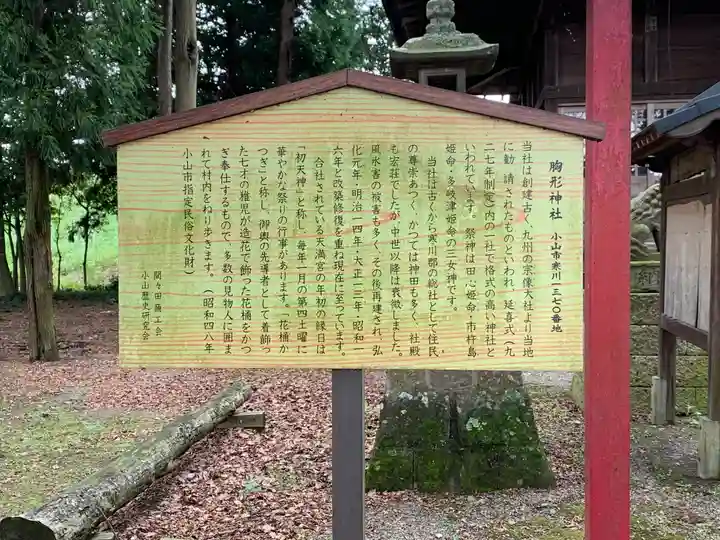 胸形神社　小山市寒川一三七〇番地
当社は創建古く、九州の宗像大社より当地
に勧請されたものといわれ、延喜式（九
二七年制定）内の一社で格式の高い神社と
いわれています。祭神は田心姫命・市杵島
姫命・多岐津姫命の三女神です。
当社は古くから寒川郡の総社として住民
の尊崇あつく、かつては神田も多く、社殿
も宏荘でしたが、中世以降は衰微しました。
風水害の被害も多く、その後再建され、弘
化元年・明治一四年・大正一三年・昭和一
六年と改築修復を重ね現在に至っています。
合社されている天満宮の年初の縁日は
「初天神」と称し、毎年一月の第四土曜に
華やかな祭りの行事があります。「花桶か
つぎ」と称し、御輿の先導者として着飾っ
た七才の稚児が造花で飾った花桶をかつ
ぎ奉仕するもので、多数の見物人に囲ま
れて村内をねり歩きます。（昭和四八年
小山市指定民俗文化財）
間々田商工会
小山歴史研究会